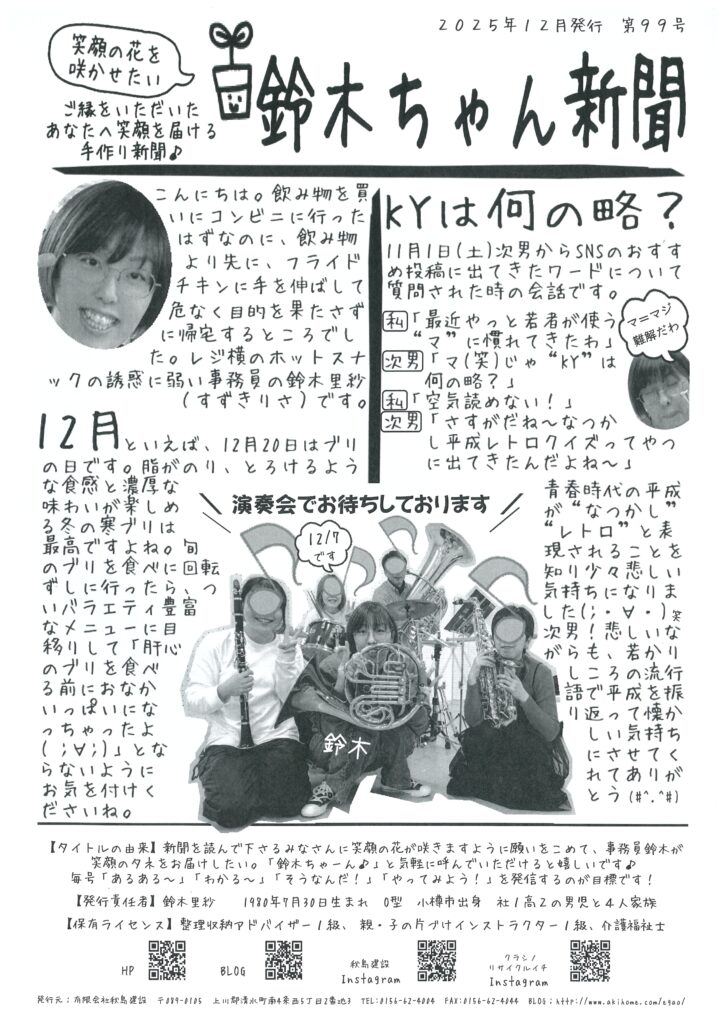 2025年12月発行　第99号
笑顔の花を
咲かせたい
鈴木ちゃん新聞
ご縁をいただいた
あなたへ笑顔を届ける
手作り新聞♪
こんにちは。飲み物を買
いにコンビニに行った
はずなのに、飲み物
より先に、フライド
チキンに手を伸ばして
危なく目的を果たさず
に帰宅するところでし
た。レジ横のホットスナ
ックの誘惑に弱い事務員の鈴木里紗
(すずきりさ)です。
12月といえば、12月20日はブリ
の日です。脂がのり、とろけるよう
な食感と濃厚な
味わいが楽しめ
る冬の寒ブリは
最高ですよね。旬
のブリを食べに回転
ずしに行ったら、つ
いバラエティ豊富
なメニューに目
移りして「肝心
のブリを食べ
る前におなか
いっぱいにな
っちゃったよ
(;∀;)」とな
らないように
お気を付けく
ださいね。
KYは何の略？
11月1日(土)次男からSNSのおすす
め投稿に出てきたワードについて
質問された時の会話です。
私「最近やっと若者が使う
“マ”に慣れてきたわ」
次男「マ(笑)じゃ“KY”は
何の略？」
私「空気読めない！」
次男「さすがだね～なつか
し平成レトロクイズってやつ
に出てきたんだよね～」
マ=マジ
難解だわ
青春時代の平成
が“なつかし”
“レトロ”と表
現されることを
知り少々悲しい
気持ちになりま
した(;・∀・)笑
次男！悲しいな
がらも、若かり
しころの流行
語で平成を振
り返って懐か
しい気持ち
にさせてく
れてありが
とう(#^.^#)
演奏会でお待ちしております
12/7
です
鈴木
【タイトルの由来】新聞を読んで下さるみなさんに笑顔の花が咲きますように願いをこめて、事務員鈴木が
笑顔のタネをお届けしたい。「鈴木ちゃーん♪」と気軽に呼んでいただけると嬉しいです♪
毎号「あるある～」「わかる～」「そうなんだ！」「やってみよう！」を発信するのが目標です！
【発行責任者】鈴木里紗　1980年7月30日生まれ　O型　小樽市出身　社1高2の男児と4人家族
【保有ライセンス】整理収納アドバイザー1級、親・子の片づけインストラクター1級、介護福祉士
HP
BLOG
秋島建設
Instagram
クラシノ
リサイクルイチ
Instagram
発行元：有限会社秋島建設　〒089-0105　上川郡清水町南4条西5丁目2番地3　TEL:0156-62-4004　FAX:0156-62-4044　BLOG：http://www.akihome.com/egao/